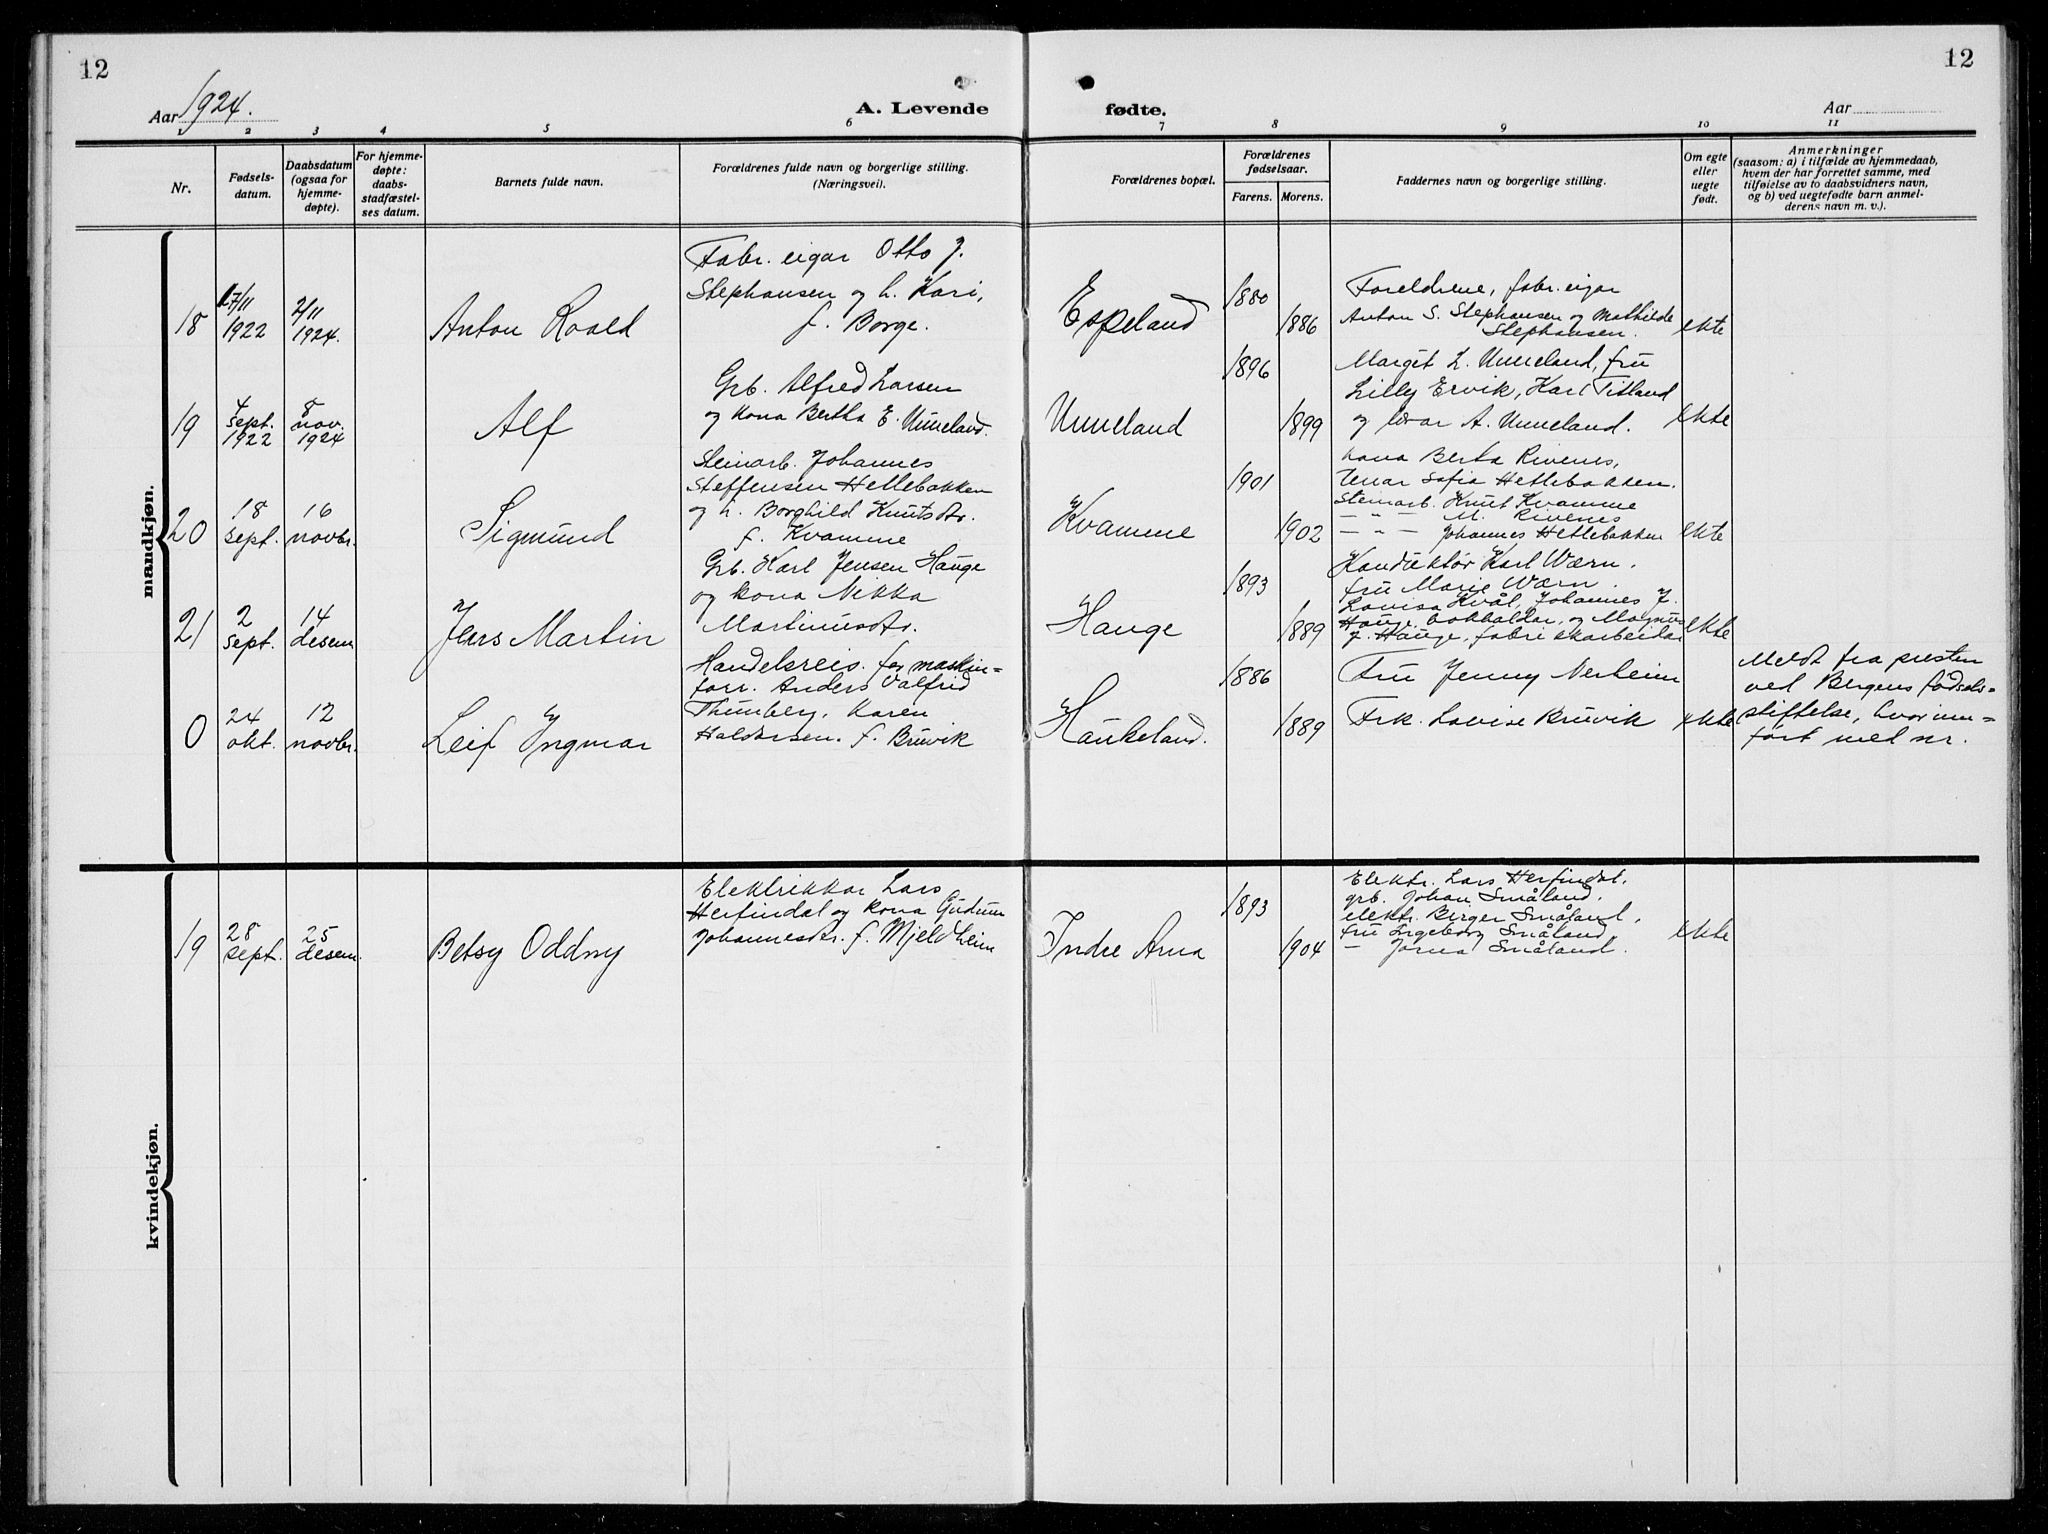 12
12
Aar 1924.
A. Levende
fødte.
Aar
1 2 3 4 5 6 7 8 9 10 11
Nr.
Fødsels-
datum.
Daabsdatum
(ogsaa for
hjemme-
døpte).
For hjemme-
døpte:
daabs-
stadfæstel-
ses datum.
Barnets fulde navn.
Forældrenes fulde navn og borgerlige stilling.
(Næringsvei).
Forældrenes bopæl.
Forældrenes
fødselsaar.
Farens. Morens.
Faddernes navn og borgerlige stilling.
Om egte
eller
uegte
født.
Anmerkninger
(saasom: a) i tilfælde av hjemmedaab,
hvem der har forrettet samme, med
tilføielse av to daabsvidners navn,
og b) ved uegtefødte barn anmel-
derens navn m. v.).
mandkjøn.
18
17/11
1922
2/11
1924.
Anton Roald
Fabr. eigar Otto J.
Stephansen og h. Kari,
f. Borge.
Espeland
1880
1886
Foreldrene, fabr. eigar
Anton S. Stephansen og Mathilde
Stephansen.
ekte
19
4
sept.
1922
8
nov.
1924
Alf
Grb. Alfred Larsen
og kona Bertha E. Unneland.
Unneland
1896
1899
Margit L. Unneland, fru
Lilly Ervik, Karl Titland
og lærar A. Unneland.
ekte
20
18
sept.
16
novbr.
Sigmund
Steinarb. Johannes
Steffensen Hettebakken
og h. Borghild Knutsdtr.
f. Kvamme
Kvamme
1901
1902
kona Berta Rivenes,
tenar Sofia Hettebakken.
Steinarb. Knut Kvamme
— " — M. Rivenes
— " — Johannes Hettebakken
ekte
21
2
sept.
14
desem
Jens Martin
Grb. Karl Jensen Hauge
og kona Nikka
Martinusdtr.
Hauge
1893
1889
Konduktør Karl Wærn.
fru Marie Wærn.
Lovisa Kvål, Johannes J.
Hauge, bokhaldar, og Magnus
J. Hauge, fabrikarbeidar
ekte
0
24
okt.
12
novbr.
Leif Yngmar
Handelsreis. for maskin-
forr. Anders Valfrid
Thunberg, Karen
Haldorsen. f. Bruvik
Haukeland.
1886
1889
Fru Jenny Nerheim
Frk. Lovise Bruvik
ekte
Meldt fra presten
ved Bergens fødsels-
stiftelse, hvor inn-
ført med nr.
kvindekjøn.
19
28
sept.
25
desem.
Betsy Oddny
Elektrikkar Lars
Herfindal og kona Gudrun
Johannesdtr. f. Mjeldheim
Indre Arna
1893
1904
Elektr. Lars Herfindal.
grb. Johan Småland.
elektr. Berger Småland.
fru Ingeborg Småland
— Jorna Småland.
ekte